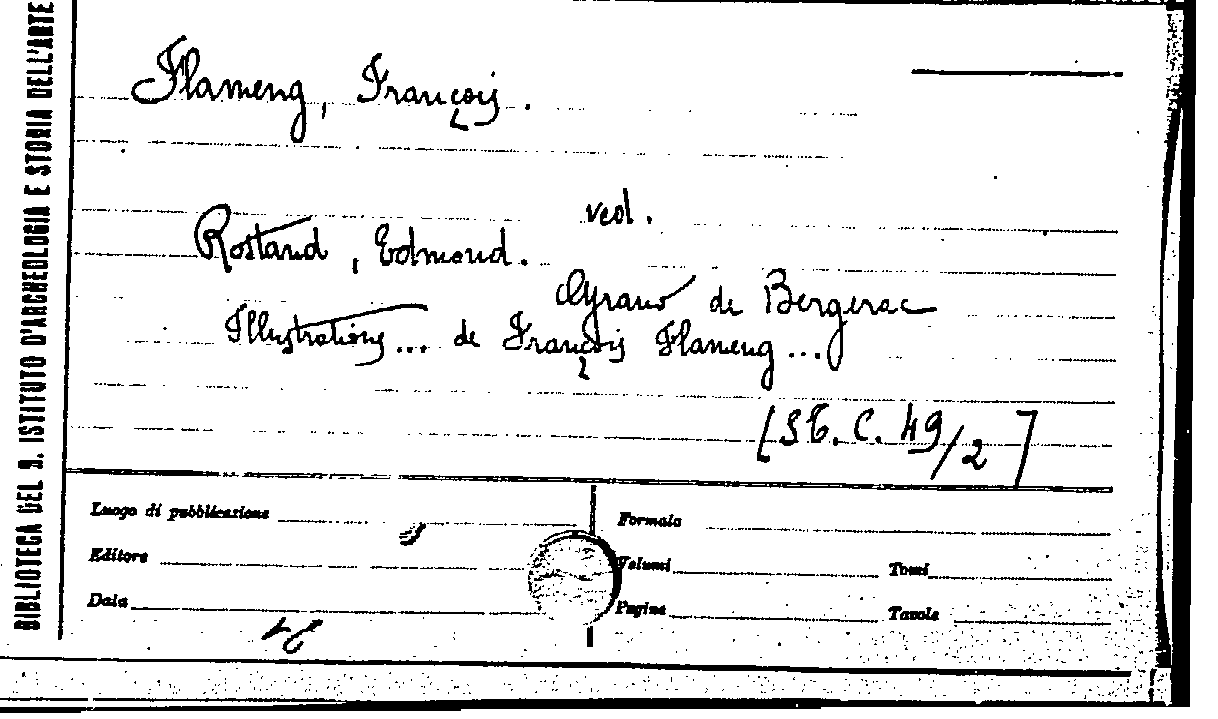 BIBLIOTECA DEL R. ISTITUTO D'ARCHEOLOGIA E STORIA DELL'ARTE
Flameng, François.
ved.
Rostand, Edmond.
Cyrano de Bergerac
Illustrations... de François Flameng...
[ST. C. 49/2]
Luogo di pubblicazione
Formato
Editore
Volumi
Tomi
Data
Pagine
Tavole